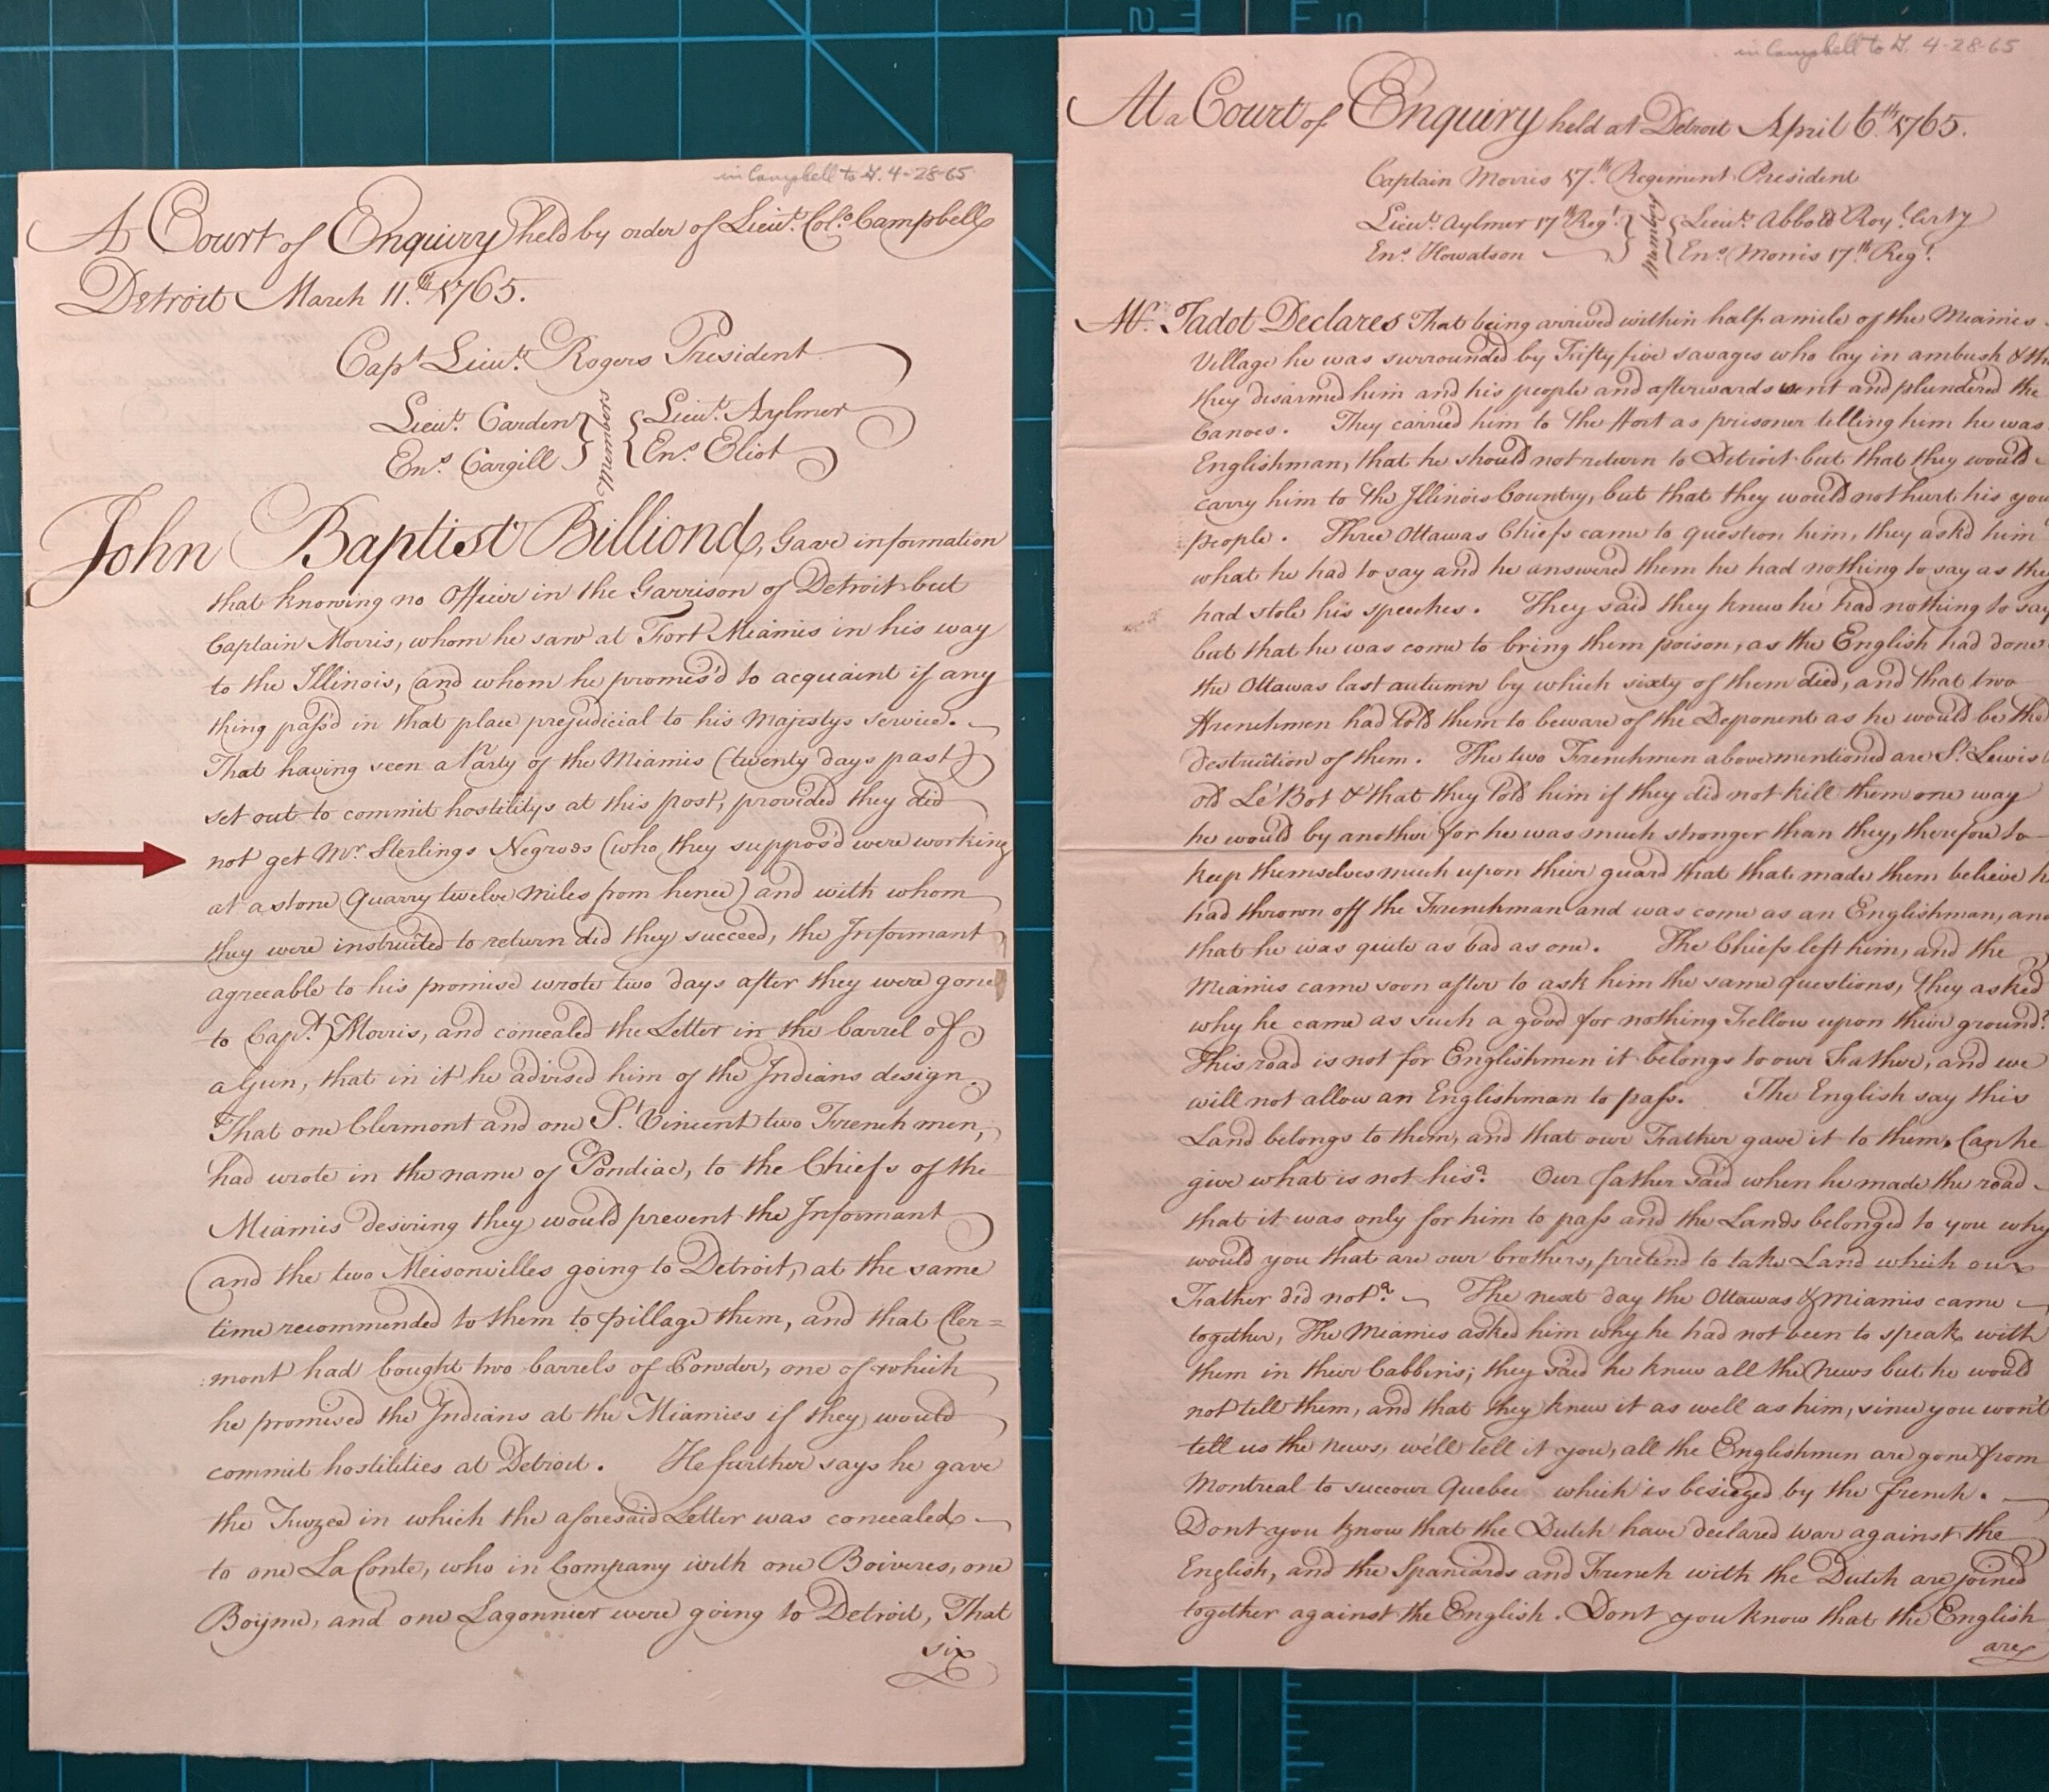 in Campbell to G. 4-28-65
A Court of Enquiry held by order of Lieut. Col.o Campbell
Detroit March 11.th 1765.
Capt Lieut. Rogers President
Lieut. Carden
Ens. Cargill
Members
Lieut. Aylmer
Ens. Eliot
John Baptist Billiond, Gave information
that knowing no Officer in the Garrison of Detroit but
Captain Morris, whom he saw at Fort Miamis in his way
to the Illinois, (and whom he promis'd to acquaint if any
thing pass'd in that place prejudicial to his Majestys service.
That having seen a Party of the Miamis (twenty days past)
set out to commit hostilitys at this post, provided they did
not get Mr. Sterlings Negroes (who they suppos'd were working
at a stone Quarry twelve miles from hence) and with whom
they were instructed to return did they succeed, the Informant
agreeable to his promise wrote two days after they were gone
to Capt. Morris, and concealed the Letter in the barrel of
a Gun, that in it he advised him of the Indians design.
That one Clermont and one St. Vincent two French men,
had wrote in the name of Pondiac, to the Chiefs of the
Miamis desiring they would prevent the Informant
and the two Meisonvilles going to Detroit, at the same
time recommended to them to pillage them, and that Cler=
:mont had bought two barrels of Powder, one of which
he promised the Indians at the Miamies if they would
commit hostilities at Detroit. He further says he gave
the Fuzee in which the aforesaid Letter was concealed
to one La Conte, who in Company with one Boiveres, one
Boyme, and one Lagonnier were going to Detroit, That
six
in Campbell to G. 4-28-65
At a Court of Enquiry held at Detroit April 6.th 1765.
Captain Morris 17.th Regiment President
Lieut. Aylmer 17th Reg.t
Ens. Howatson
Members
Lieut. Abbott Roy.l Arty
Ens. Morris 17.th Reg.t
Mr. Jadot Declares That being arrived within half a mile of the Miamis
Village he was surrounded by Fifty five savages who lay in ambush & th
they disarmed him and his people and afterwards went and plundered the
Canoes. They carried him to the Fort as prisoner telling him he was
Englishman, that he should not return to Detroit but that they would
carry him to the Illinois Country, but that they would not hurt his you
people. Three Ottawas Chiefs came to question him, they ask'd him
what he had to say and he answered them he had nothing to say as they
had stole his speeches. They said they knew he had nothing to say
but that he was come to bring them poison, as the English had done
the Ottawas last autumn by which sixty of them died, and that two
Frenchmen had told them to beware of the Deponent as he would be the
destruction of them. The two Frenchmen abovementioned are St. Lewis
old Le'Bot & that they told him if they did not kill them one way
he would by another for he was much stronger than they, therefore to
keep themselves much upon their guard that that made them believe h
had thrown off the Frenchman and was come as an Englishman, and
that he was quite as bad as one. The Chiefs left him, and the
Miamis came soon after to ask him the same questions, they asked
why he came as such a good for nothing Fellow upon their ground?
This road is not for Englishmen it belongs to our Father, and we
will not allow an Englishman to pass. The English say this
Land belongs to them, and that our Father gave it to them. Can he
give what is not his? Our father said when he made the road
that it was only for him to pass and the Lands belonged to you why
would you that are our brothers, pretend to take Land which our
Father did not? The next day the Ottawas & Miamis came
together, The Miamis asked him why he had not been to speak with
them in their Cabbins; they said he knew all the News but he would
not tell them, and that they knew it as well as him, since you won't
tell us the news, we'll tell it you, all the Englishmen are gone from
Montreal to succour Quebec which is besieged by the french.
Dont you know that the Dutch have declared war against the
English, and the Spaniards and French with the Dutch are joined
together against the English. Dont you know that the English
are